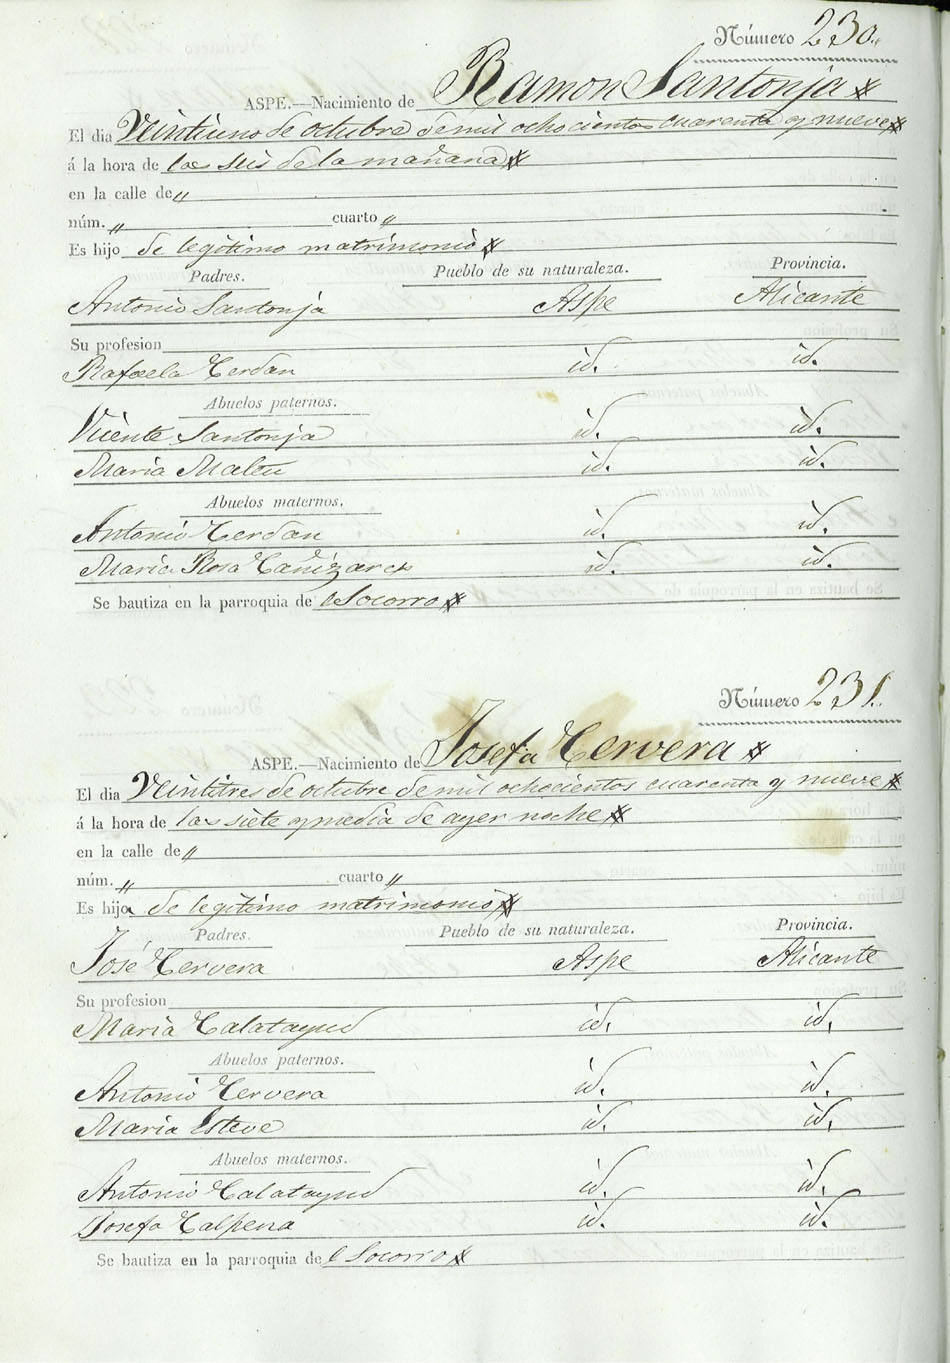 Número 230.
ASPE.—Nacimiento de Ramon Santonja
El dia Veintiuno de octubre de mil ochocientos cuarenta y nueve
á la hora de las seis de la mañana
en la calle de "
núm. " cuarto "
Es hijo de legítimo matrimonio
Padres. Pueblo de su naturaleza. Provincia.
Antonio Santonja Aspe Alicante
Su profesion
Rafaela Cerdan id. id.
Abuelos paternos.
Vicente Santonja id. id.
Maria id. id.
Abuelos maternos.
Antonio Cerdan id. id.
Maria Rosa Cañizares id. id.
Se bautiza en la parroquia de Socorro
Número 231.
ASPE.—Nacimiento de Josefa Cervera
El dia Veintitres de octubre de mil ochocientos cuarenta y nueve
á la hora de las siete y media de ayer noche
en la calle de "
núm. " cuarto "
Es hija de legítimo matrimonio
Padres. Pueblo de su naturaleza. Provincia.
José Cervera Aspe Alicante
Su profesion
Maria Calatayud id. id.
Abuelos paternos.
Antonio Cervera id. id.
Maria Esteve id. id.
Abuelos maternos.
Antonio Calatayud id. id.
Josefa Calpena id. id.
Se bautiza en la parroquia de Socorro